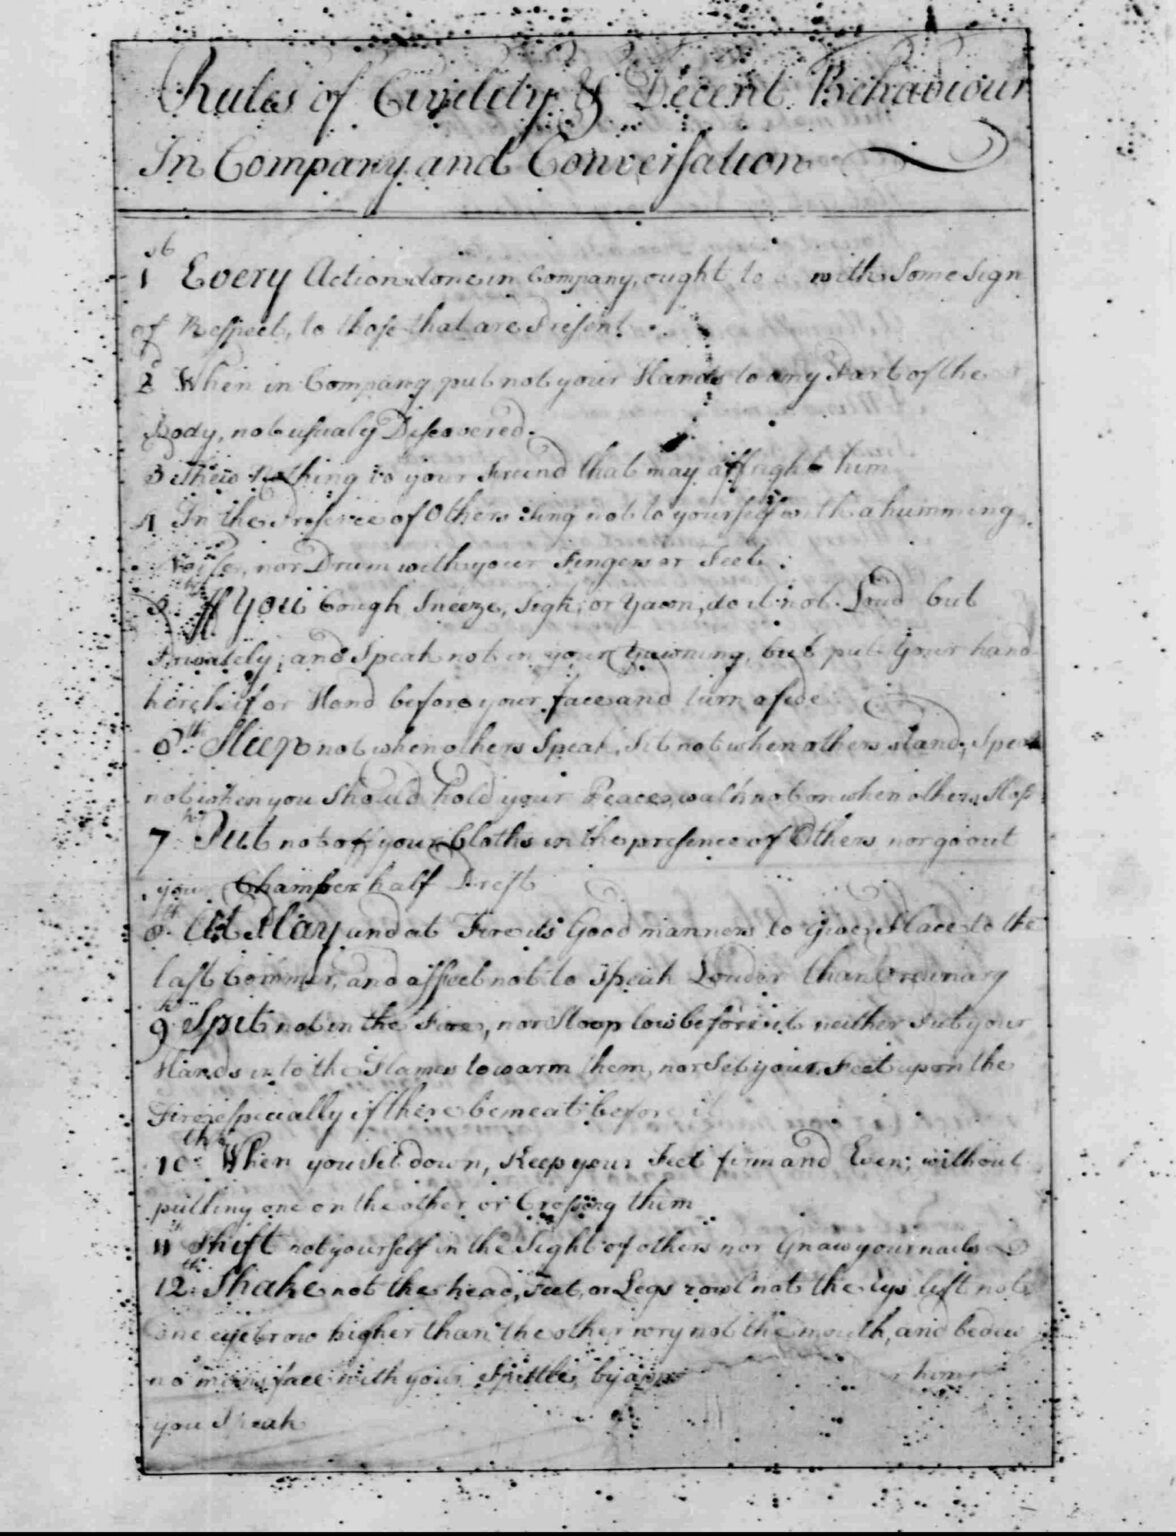 Rules of Civility & Decent Behaviour
In Company and Conversation
1st Every Action done in Company, ought to with Some Sign
of Respect, to those that are Present.
2d When in Company, put not your Hands to any Part of the
Body, not usualy Discovered.
3 Shew Nothing to your Freind that may affright him
4 In the Presence of Others Sing not to yourself with a humming
Noise, nor Drum with your Fingers or Feet.
5th If You Cough, Sneeze, Sigh, or Yawn, do it not Loud but
Privately; and Speak not in your Yawning, but put Your hand
kercheif or Hand before your face and turn aside
6th Sleep not when others Speak, Sit not when others stand, Speak
not when you Should hold your Peace, walk not on when others Stop
7th Put not off your Cloths in the presence of Others, nor go out
your Chamber half Drest
8th At Play and at Fire its Good manners to Give Place to the
last Commer, and affect not to Speak Louder than Ordinary
9th Spit not in the Fire, nor Stoop low before it neither Put your
Hands into the Flames to warm them, nor Set your Feet upon the
Fire especially if there be meat before it
10th When you Sit down, Keep your Feet firm and Even; without
putting one on the other or Crossing them
11th Shift not yourself in the Sight of others nor Gnaw your nails
12th Shake not the head, Feet, or Legs rowl not the Eys lift not
one eyebrow higher than the other wry not the mouth, and bedew
no mans face with your Spittle, by app him
you Speak